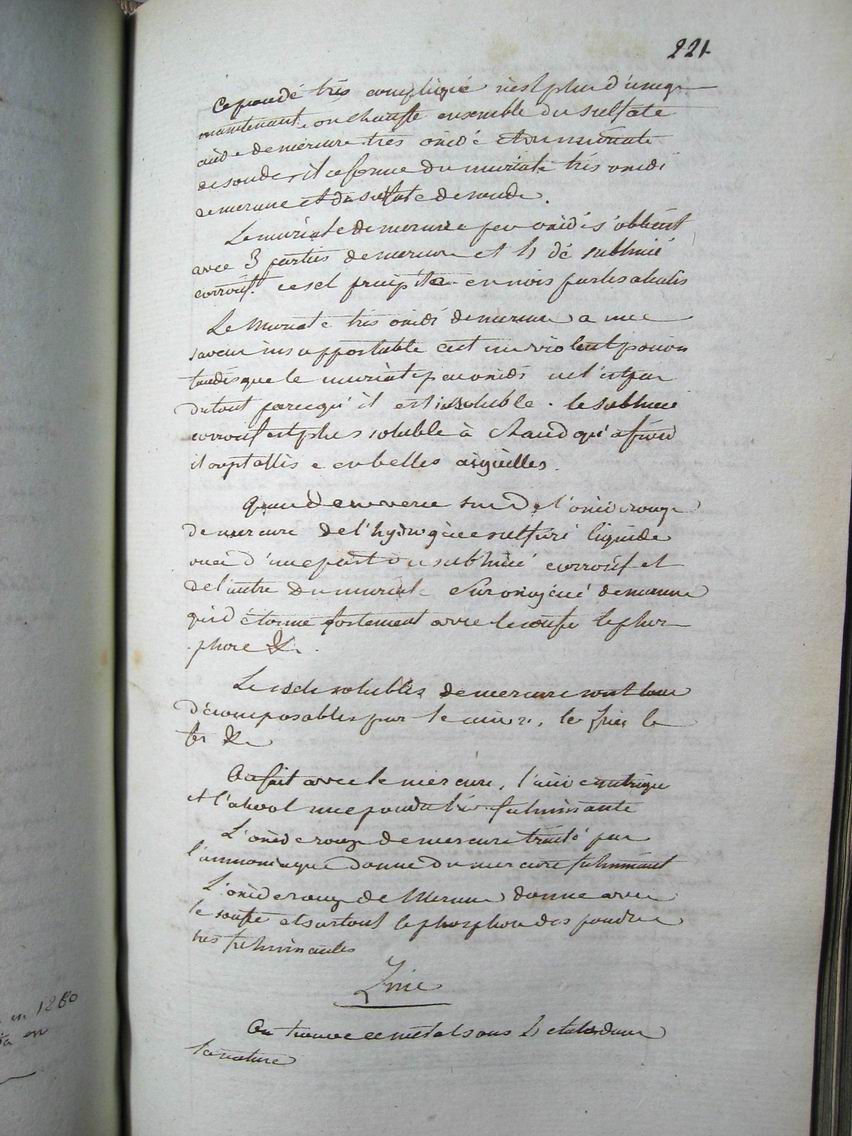 221
Ce procédé très compliqué n'est plus d'usage
maintenant. on chauffe ensemble du sulfate
acide de mercure très oxidé et du muriate
de soude, il se forme du muriate très oxidé
de mercure et du sulfate de soude.
Le muriate de mercure peu oxidé s'obtient
avec 3 parties de mercure et 4 de sublimé
corrosif. ce sel précipite en noir par les alcalis
Le Muriate très oxidé de mercure a une
saveur insupportable c'est un violent poison
tandis que le muriate peu oxidé ne l'est pas
du tout parcequ'il est insoluble. le sublimé
corrosif est plus soluble à chaud qu'à froid
il crystallise en belles aiguilles.
Quand on verse sur de l'oxide rouge
de mercure de l'hydrogène sulfuré liquide
on a d'une part du sublimé corrosif et
de l'autre du muriate suroxigéné de mercure
qui détonne fortement avec le soufre le phos-
phore &c.
Les sels solubles de mercure sont tous
décomposables par le cuivre, le zinc le
fer &c
On fait avec le mercure, l'acide nitrique
et l'alcool une poudre très fulminante
L'oxide rouge de mercure traité par
l'ammoniaque donne du mercure fulminant
L'oxide rouge de Mercure donne avec
le soufre et surtout le phosphore des poudres
très fulminantes
Zinc
On trouve ce métal sous 4 états dans
la nature
en 1280
en